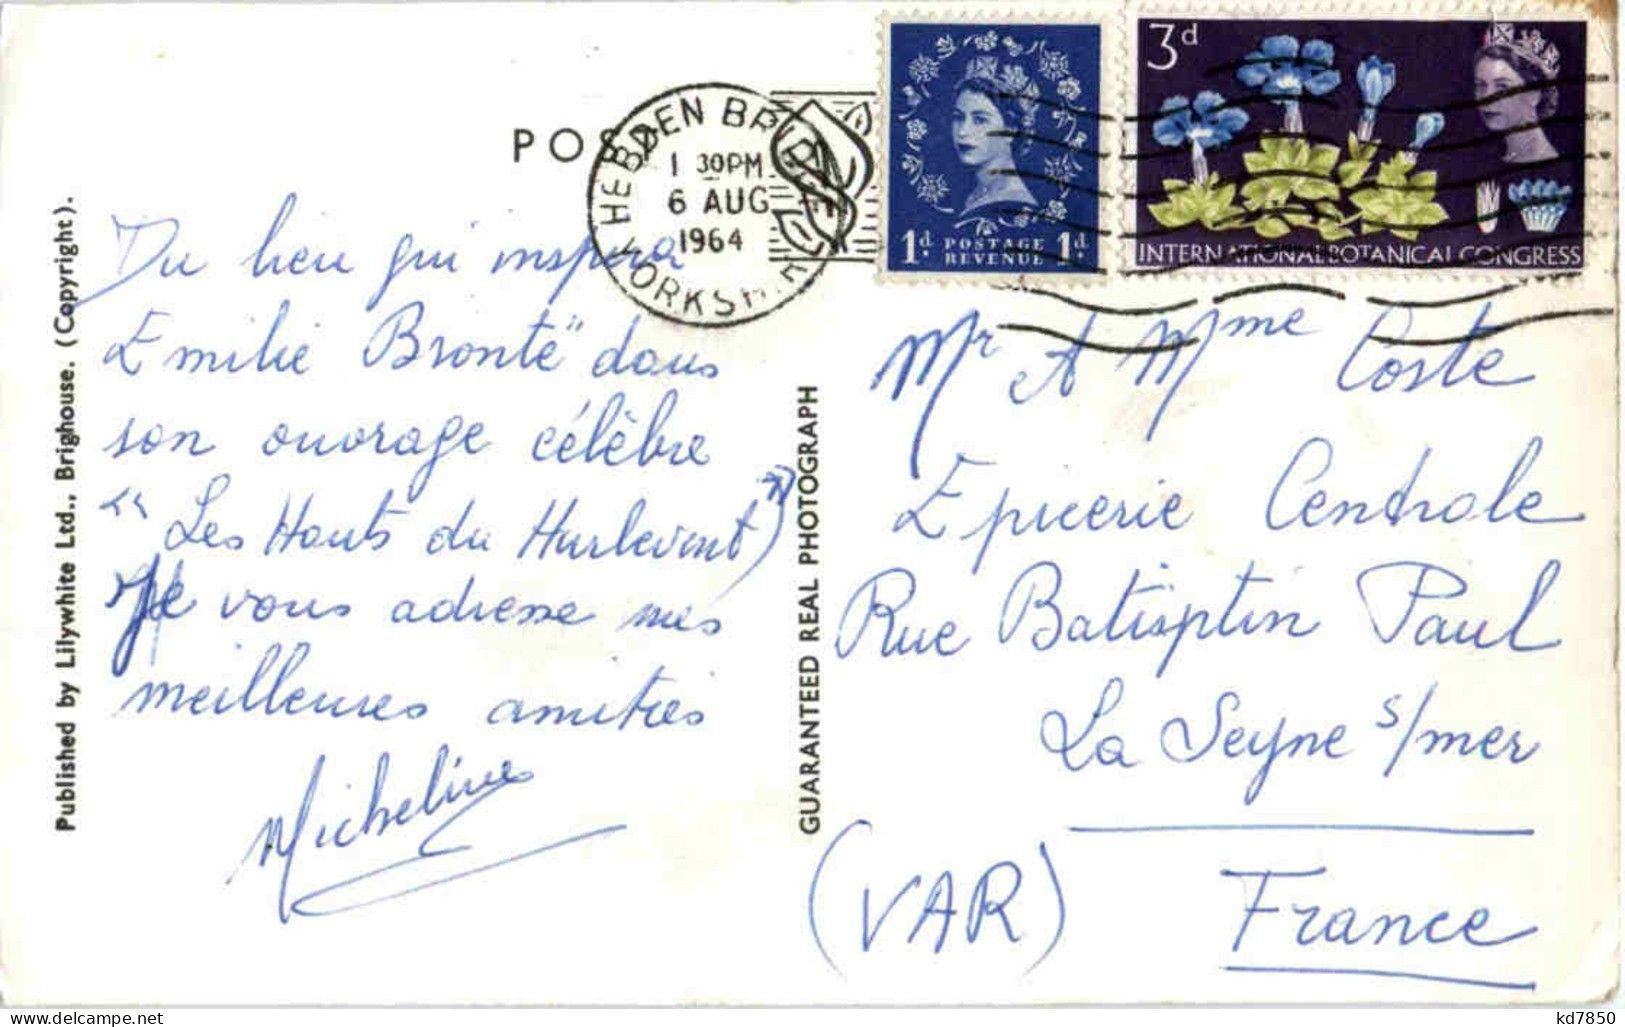 POS
HEBDEN BRIDGE
1 30PM
6 AUG
1964
YORKSHIRE
1d POSTAGE REVENUE 1d
3d
INTERNATIONAL BOTANICAL CONGRESS
Du lieu qui inspira
Emilie Bronté" dans
son ouvrage célèbre
"Les Hauts du Hurlevent")
Je vous adresse mes
meilleures amitiés
Micheline
Mr et Mme Coste
Epicerie Centrale
Rue Batisptin Paul
La Seyne s/mer
(VAR) France
Published by Lilywhite Ltd., Brighouse. (Copyright).
GUARANTEED REAL PHOTOGRAPH
kd7850